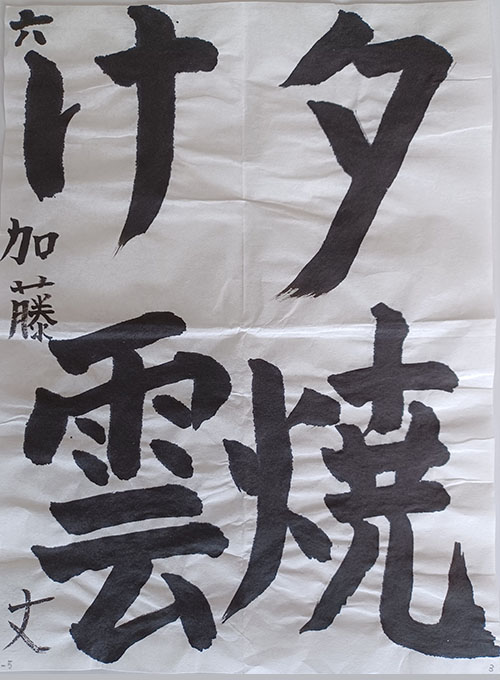 夕焼
け雲
六 加藤 丈
-5
3